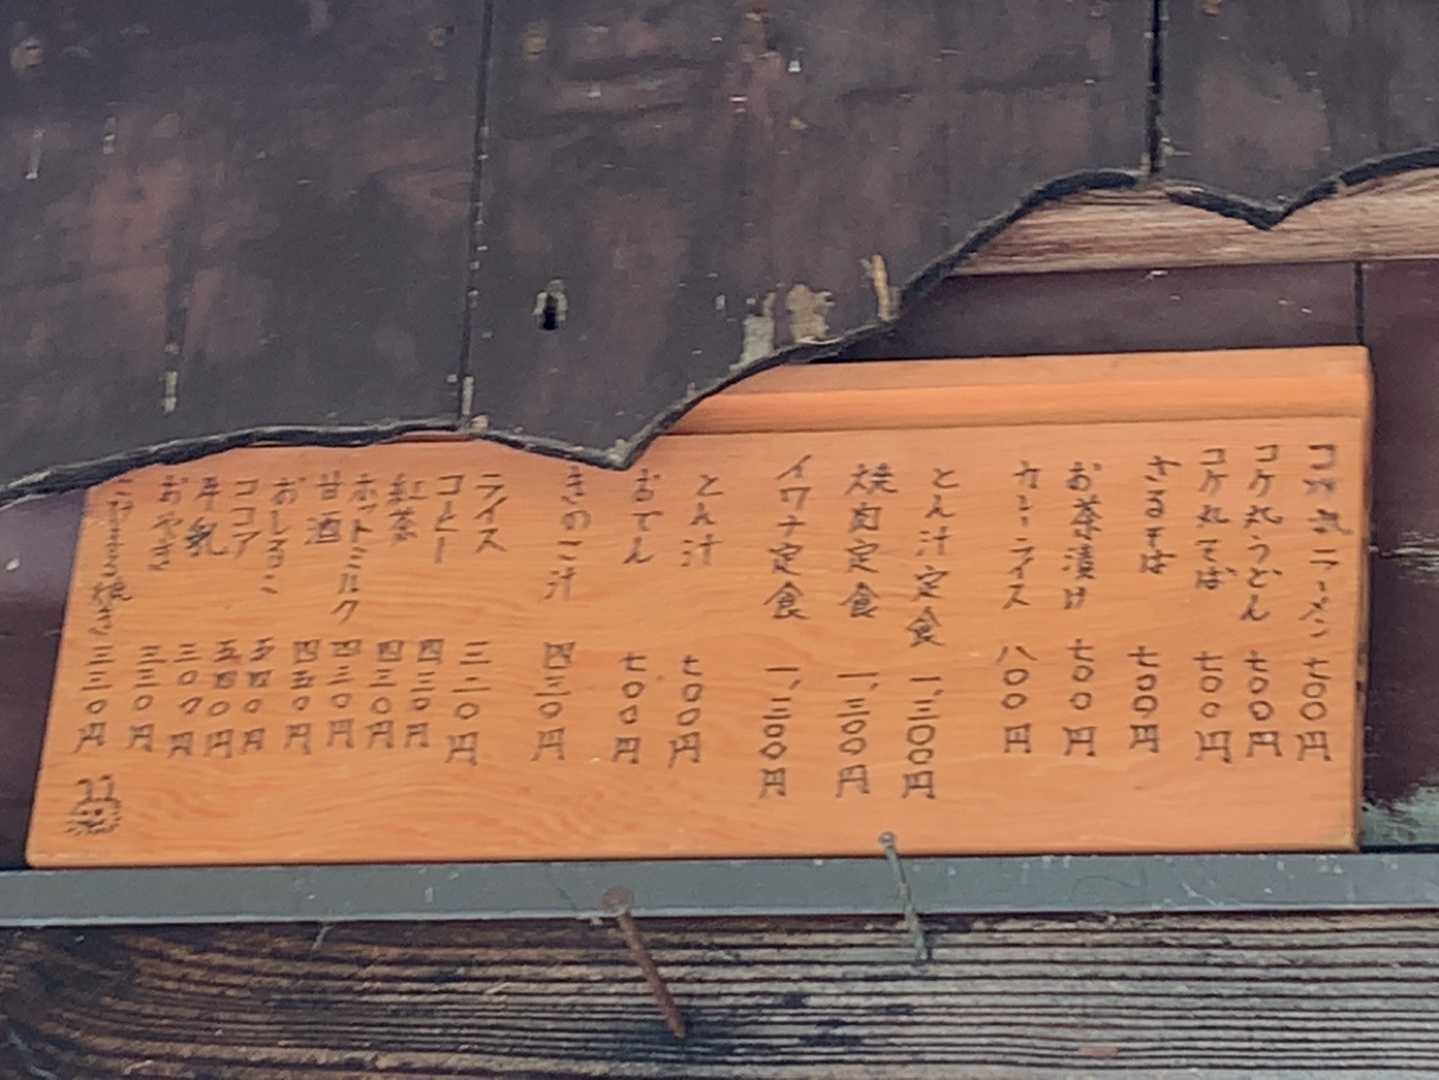 コケ丸ラーメン 七〇〇円
コケ丸うどん 七〇〇円
コケ丸そば 七〇〇円
ざるそば 七〇〇円
お茶漬け 七〇〇円
カレーライス 八〇〇円
とん汁定食 一、三〇〇円
焼肉定食 一、三〇〇円
イワナ定食 一、三〇〇円
とん汁 七〇〇円
おでん 七〇〇円
きのこ汁 四三〇円
ライス 三二〇円
コーヒー 四三〇円
紅茶 四三〇円
ホットミルク 四三〇円
甘酒 四五〇円
おしるこ 五四〇円
ココア 五四〇円
牛乳 三〇〇円
おやき 三三〇円
三三〇円